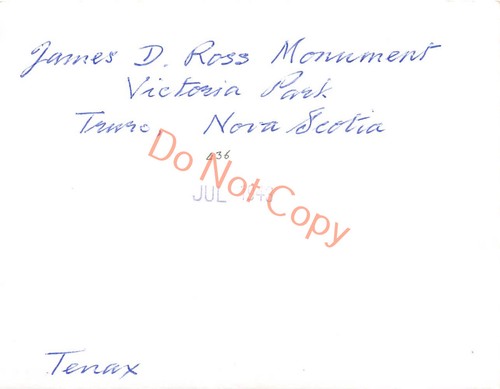 James D. Ross Monument
Victoria Park
Truro, Nova Scotia
436
Do Not Copy
JUL
Tenax